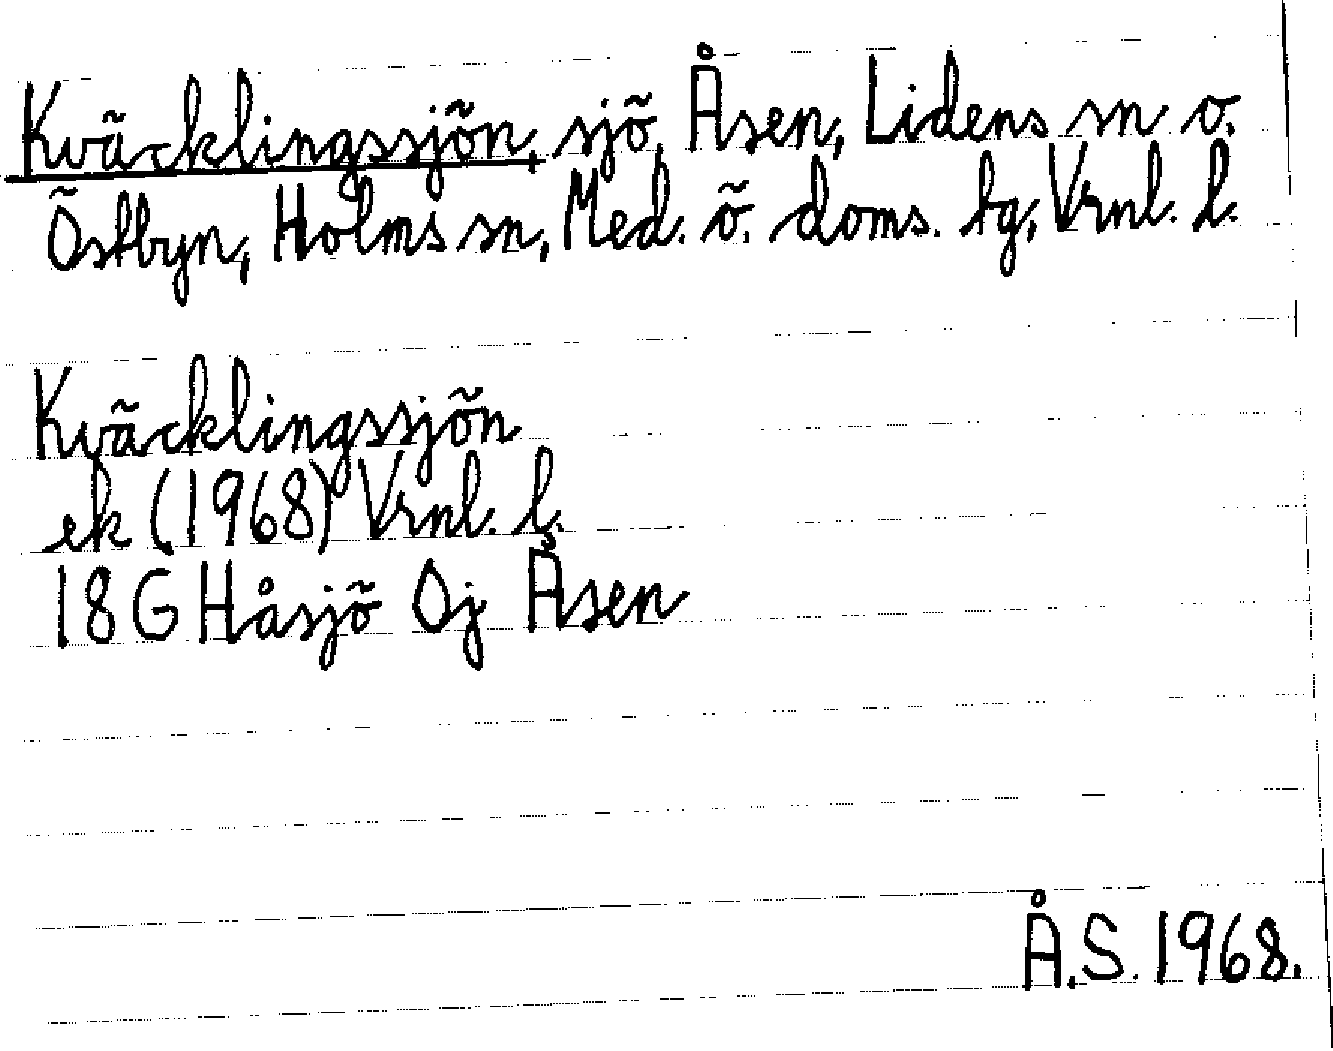 Kväcklingssjön, sjö, Åsen, Lidens sn o.
Östbyn, Holms sn, Med. ö. doms. tg, Vrnl. l.
Kväcklingssjön
ek (1968) Vrnl. l.
18 G Håsjö 0j Åsen
Å.S. 1968.